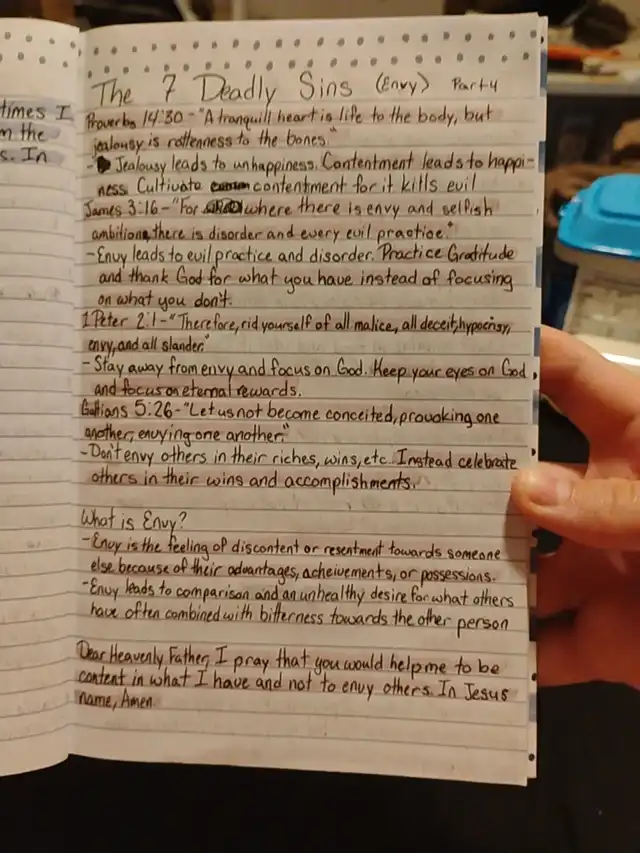 times I
m the
s. In
The 7 Deadly Sins (Envy) Part 4
Proverbs 14:30 - "A tranquill heart is life to the body, but
jealousy is rottenness to the bones"
- Jealousy leads to unhappiness. Contentment leads to happi-
ness. Cultivate contentment for it kills evil
James 3:16 - "For where there is envy and selfish
ambition, there is disorder and every evil practice."
- Envy leads to evil practice and disorder. Practice Gratitude
and thank God for what you have instead of focusing
on what you don't.
1 Peter 2:1 - "Therefore, rid yourself of all malice, all deceit, hypocrisy,
envy, and all slander."
- Stay away from envy and focus on God. Keep your eyes on God
and focus on eternal rewards.
Galtians 5:26 - "Let us not become conceited, provoking one
another, envying one another."
- Don't envy others in their riches, wins, etc. Instead celebrate
others in their wins and accomplishments.
What is Envy?
- Envy is the feeling of discontent or resentment towards someone
else because of their advantages, acheivements, or possessions.
- Envy leads to comparison and an unhealthy desire for what others
have often combined with bitterness towards the other person
Dear Heavenly Father, I pray that you would help me to be
content in what I have and not to envy others. In Jesus
name, Amen